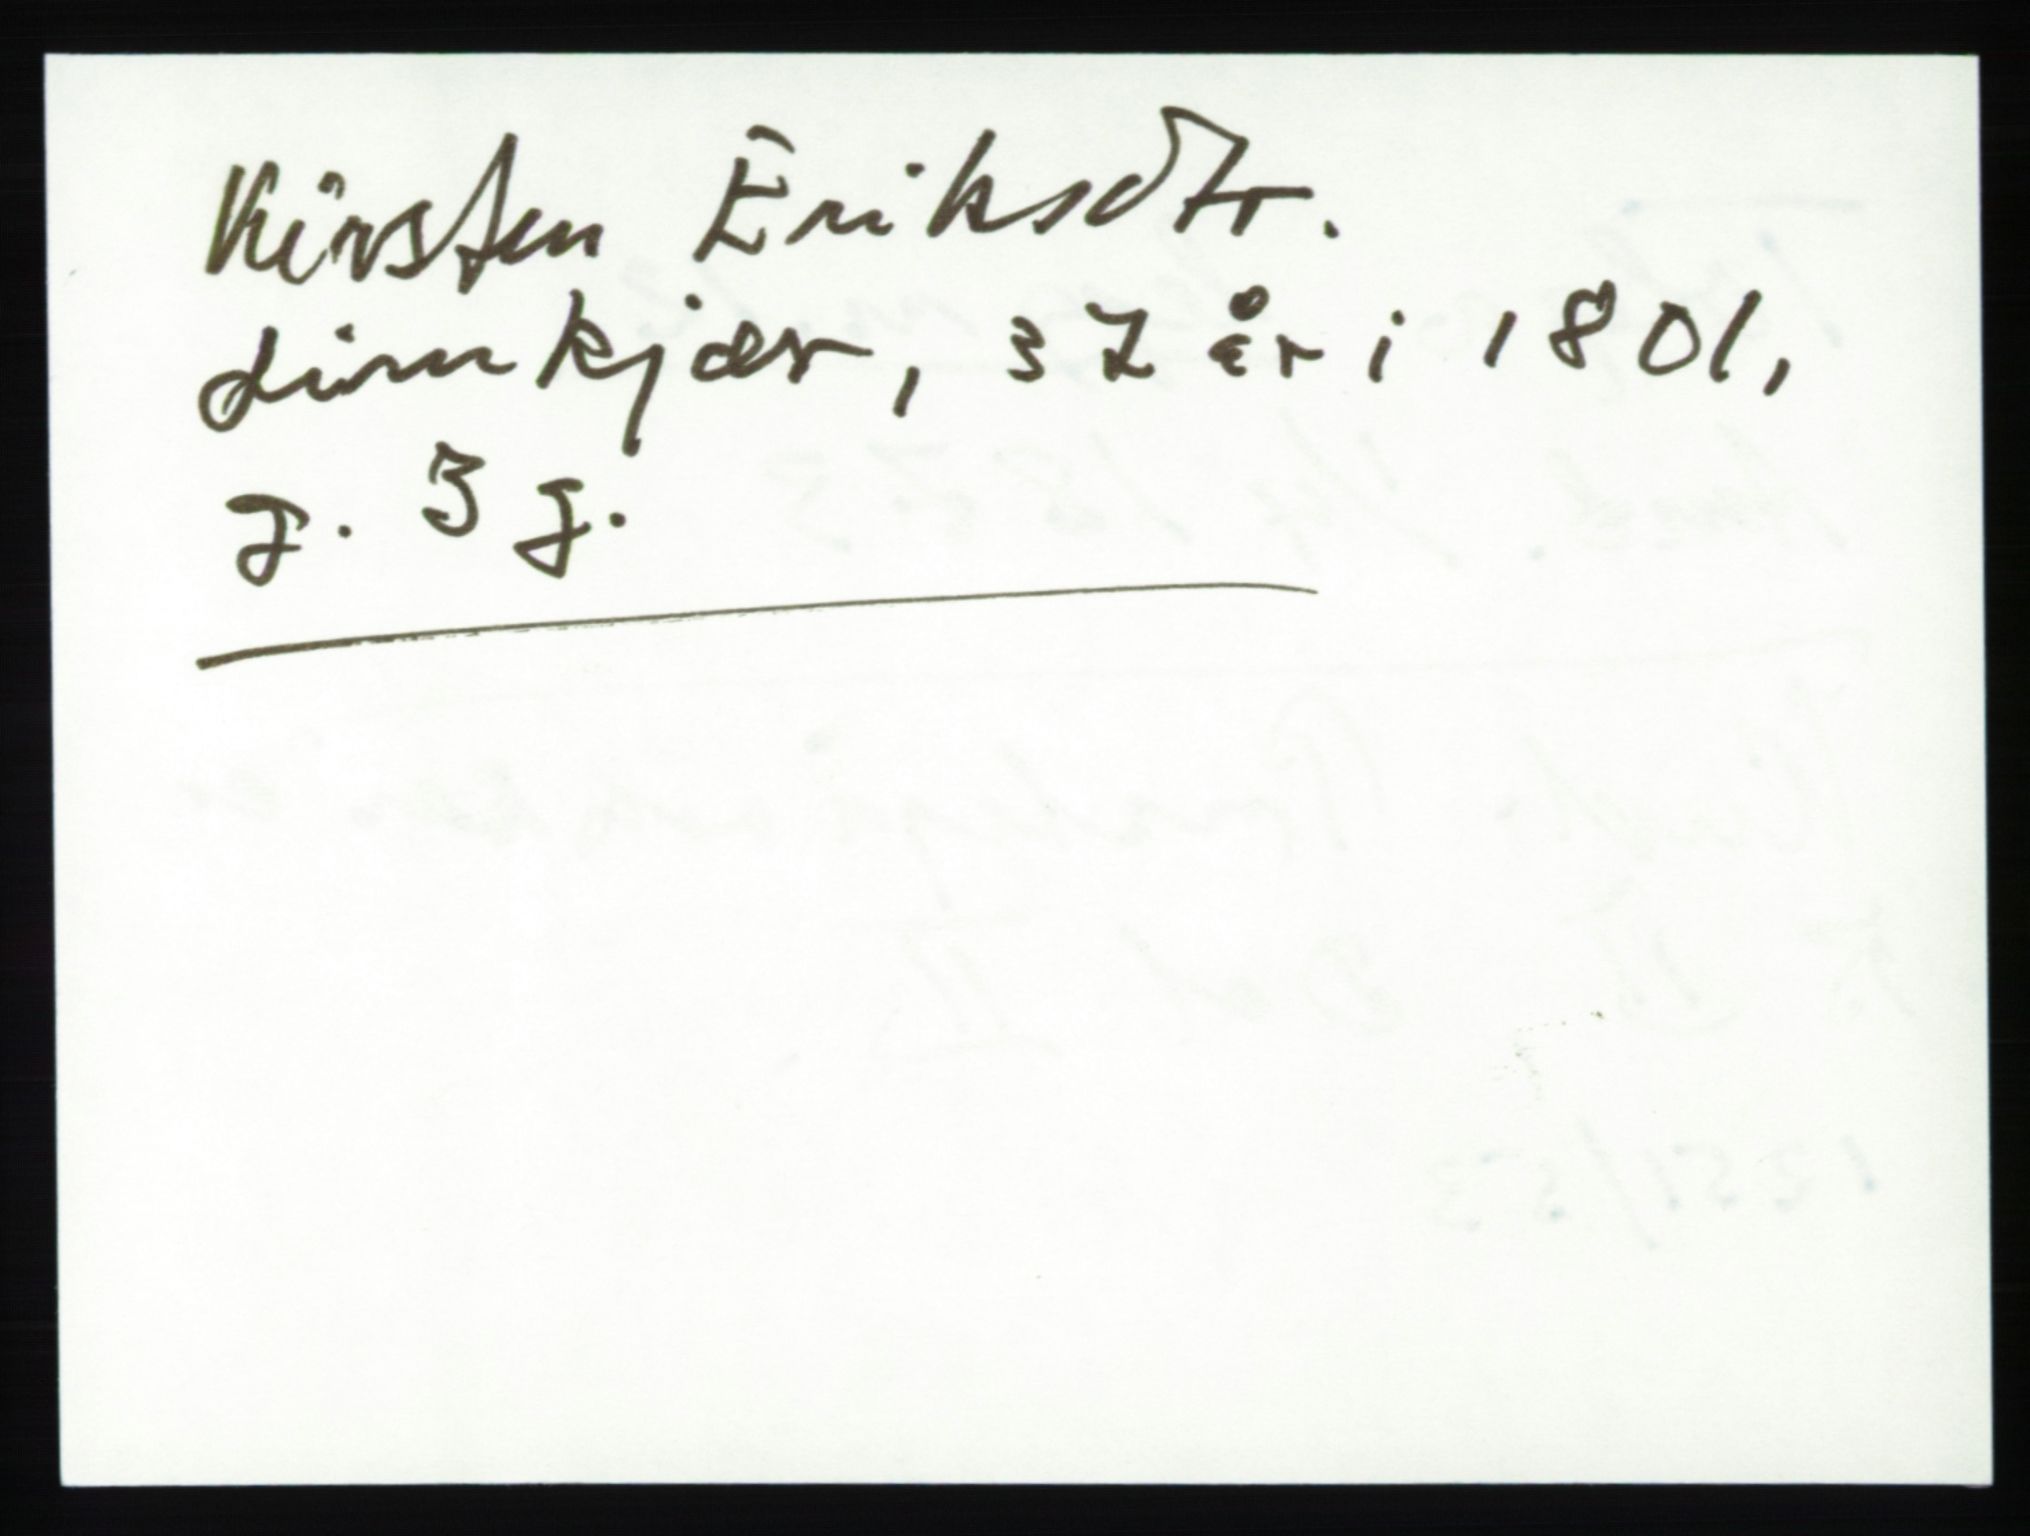 Kirsten Eriksdtr.
Limkjær, 37 år i 1801,
g. 3 g.